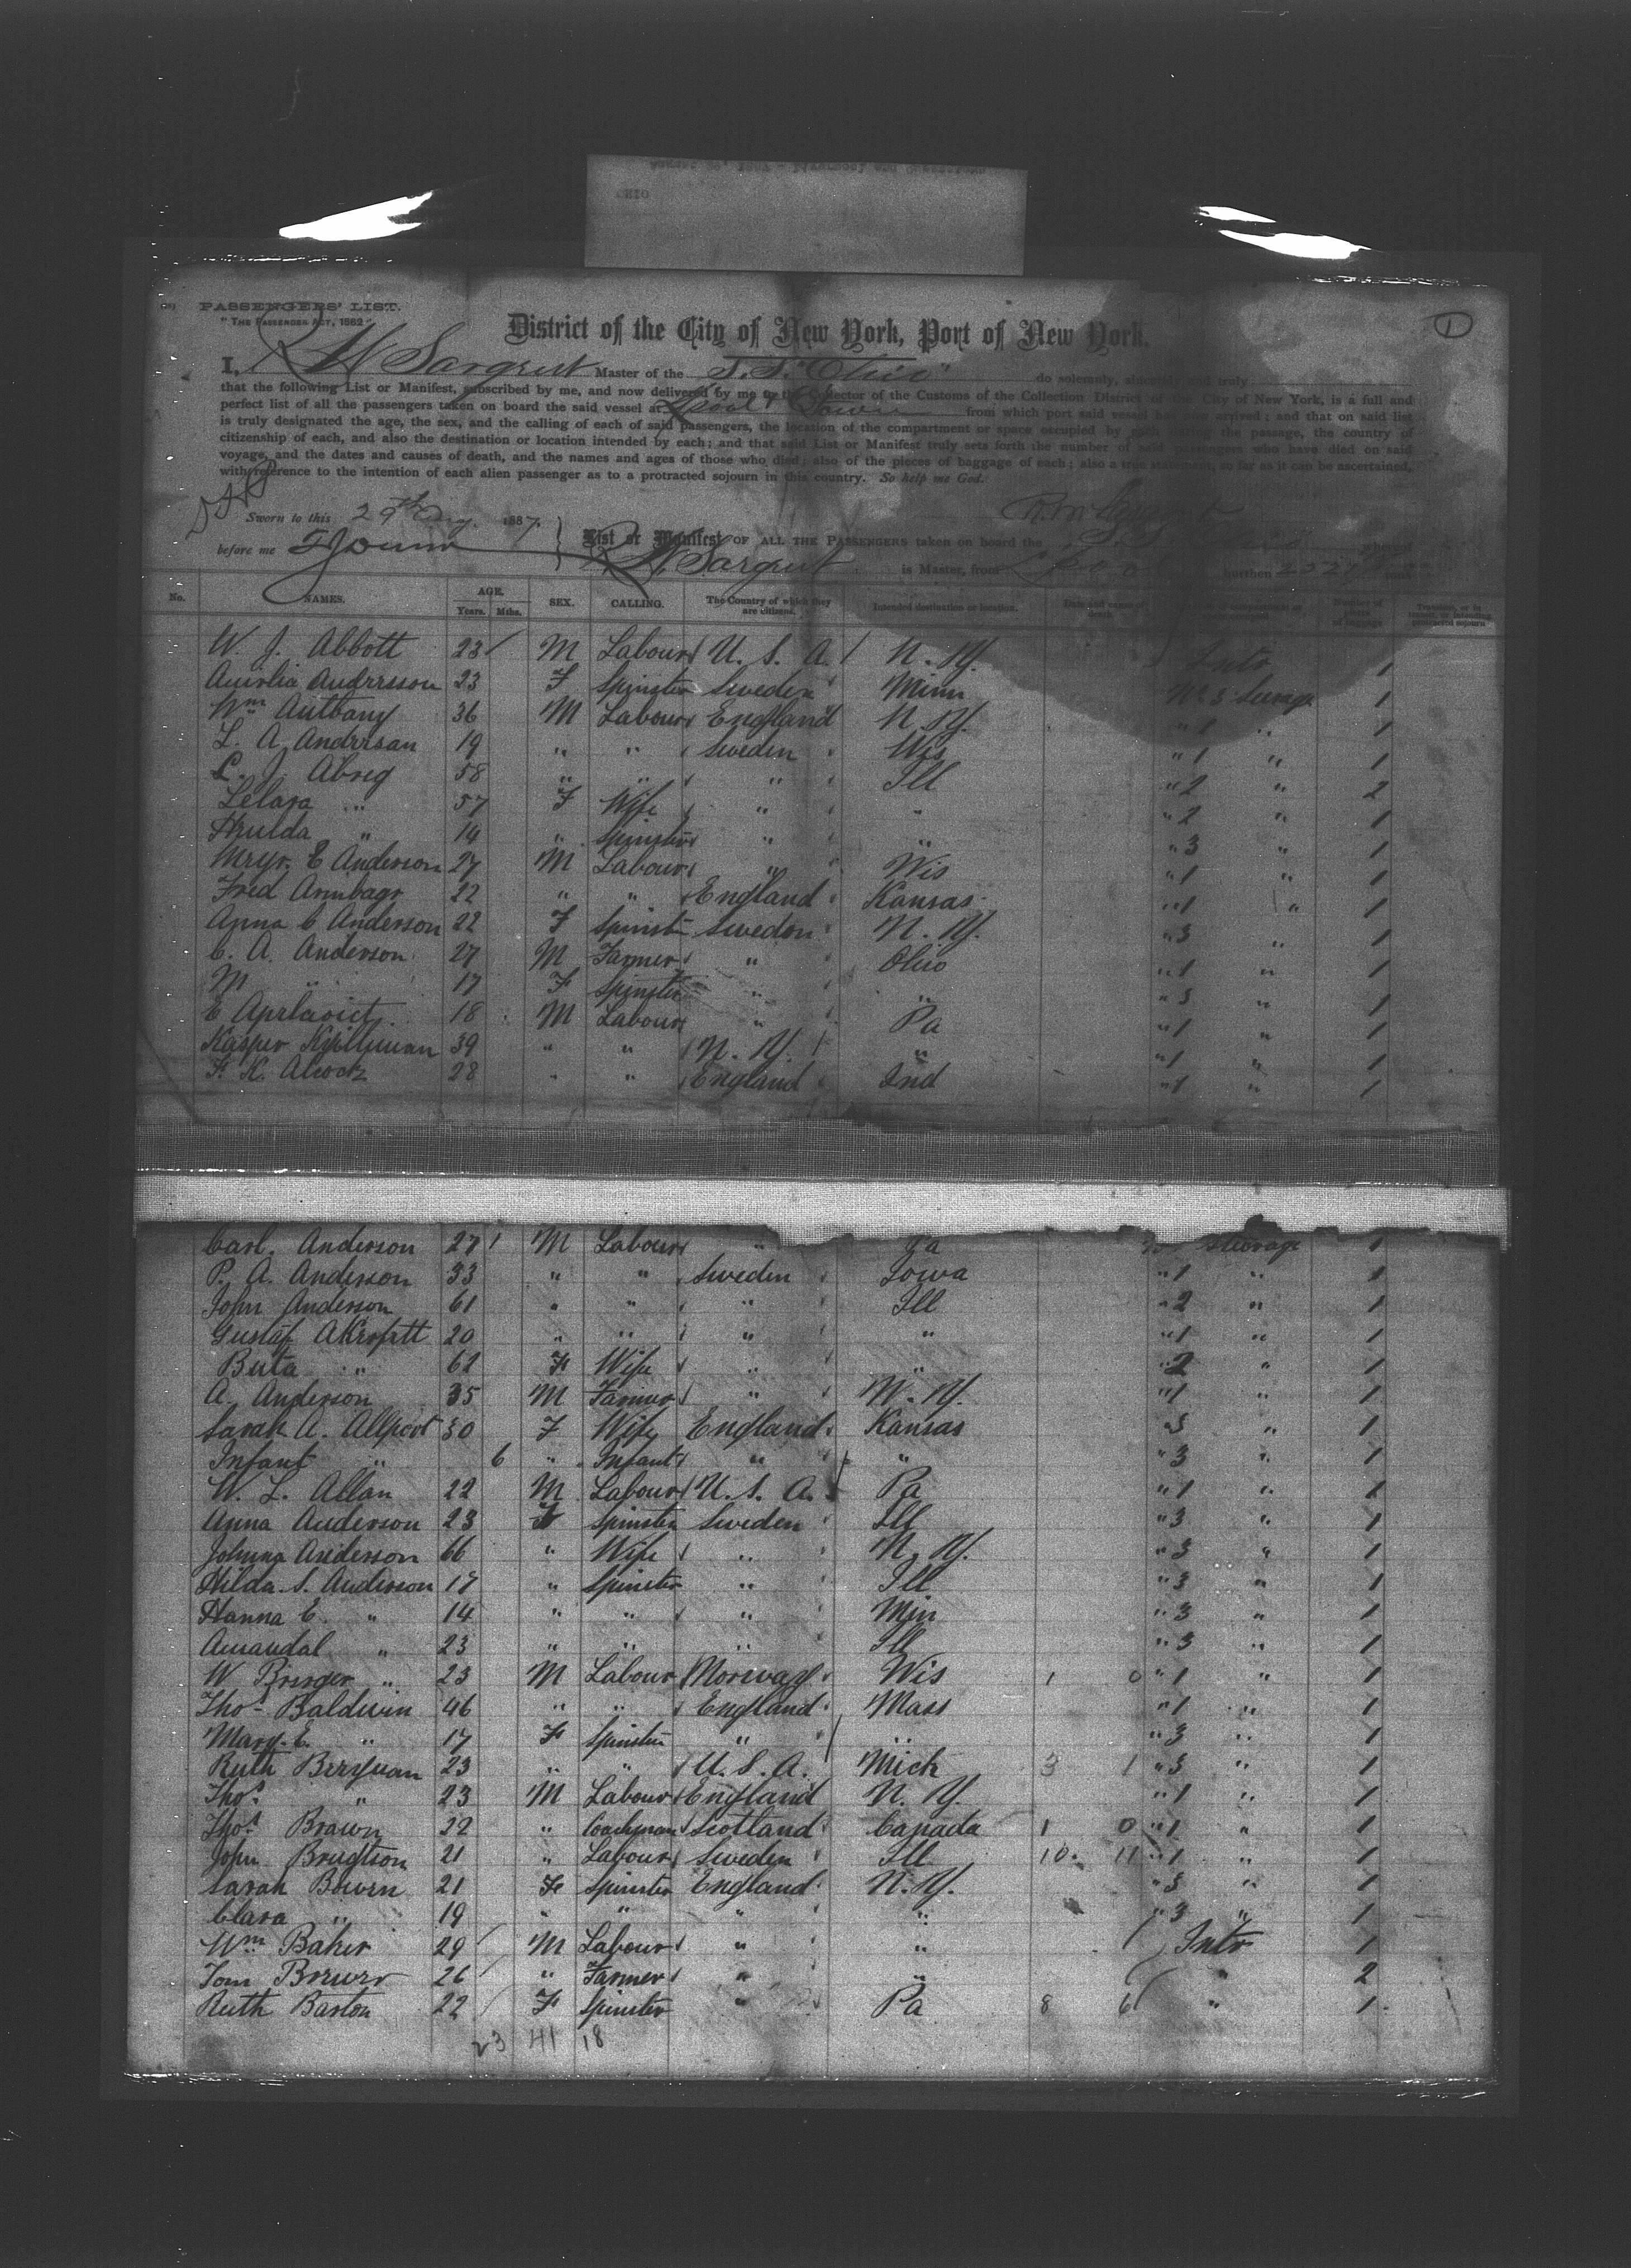 PASSENGERS' LIST.
"THE PASSENGER ACT, 1882"
1
District of the City of New York, Port of New York.
I, R W Sargent Master of the S. S. "Ohio" do solemnly, sincerely and truly
that the following List or Manifest, subscribed by me, and now delivered by me to the Collector of the Customs of the Collection District of the City of New York, is a full and
perfect list of all the passengers taken on board the said vessel at Lpool & Town from which port said vessel has now arrived; and that on said list
is truly designated the age, the sex, and the calling of each of said passengers, the location of the compartment or space occupied by each during the passage, the country of
citizenship of each, and also the destination or location intended by each; and that said List or Manifest truly sets forth the number of said passengers who have died on said
voyage, and the dates and causes of death, and the names and ages of those who died; also of the pieces of baggage of each; also a true statement, so far as it can be ascertained,
with reference to the intention of each alien passenger as to a protracted sojourn in this country. So help me God.
Sworn to this 29th Aug. 1887.
before me
List or Manifest OF ALL THE PASSENGERS taken on board the S. S. Ohio whereof
R W Sargent is Master, from Lpool burthen
No. NAMES. AGE. Years. Mths. SEX. CALLING. The Country of which they are citizens. Intended destination or location.
W. J. Abbott 23 M Labour U. S. A. N. Y. Intr 1
Aurelia Anderrsson 23 F Spinster Sweden Minn No 3 Steerage 1
Wm Anthany 36 M Labour England N. Y. " 1 " 1
L. A. Anderrsan 19 " " Sweden Wis " 1 " 1
L. J. Abreg 58 " " " Ill " 2 " 2
Lelara " 57 F Wife " " " 2 " 1
Hulda " 14 " Spinster " " " 3 " 1
E Anderson 27 M Labour " Wis " 1 " 1
Fred Armbagr 22 " " England Kansas " 1 " 1
Anna C Anderson 22 F Spinst Sweden N. Y. " 3 " 1
C. A. Anderson 27 M Farmer " Ohio " 1 " 1
M " 17 F Spinster " " " 3 " 1
E 18 M Labour " Pa " 1 " 1
Kasper Kyllyman 39 " " N. Y. " " 1 " 1
F. K. Alcock 28 " " England Ind " 1 " 1
Carl Anderson 27 M Labour " Pa Steerage 1
P. A. Anderson 33 " " Sweden Iowa " 1 " 1
John Anderson 61 " " " Ill " 2 " 1
Gustaf Akrofatt 20 " " " " " 1 " 1
Beuta " 62 F Wife " " " 2 " 1
A. Anderson 35 M Farmer " N. Y. " 1 " 1
Sarah A. Allport 30 F Wife England Kansas " 3 " 1
Infant " 6 " Infant " " " 3 " 1
W. L. Allan 22 M Labour U. S. A. Pa " 1 " 1
Anna Anderson 23 F Spinster Sweden Ill " 3 " 1
Johnna Anderson 66 " Wife " N. Y. " 3 " 1
Hilda S. Anderson 17 " Spinster " Ill " 3 " 1
Hanna E. " 14 " " " Min " 3 " 1
Amandal " 23 " " " Ill " 3 " 1
W Bruger " 23 M Labour Norway Wis 1 0 " 1 " 1
Tho- Baldwin 46 " " England Mass " 1 " 1
Mary E. " 17 F Spinster " " " 3 " 1
Ruth Berryman 23 " " U. S. A. Mich 3 1 " 3 " 1
Thos " 23 M Labour England N. Y. " 1 " 1
Thos Brawn 22 " Coachman Scotland Canada 1 0 " 1 " 1
John Brugtson 21 " Labour Sweden Ill 10. 11 " 1 " 1
Sarah Bowen 21 F Spinster England N. Y. " 3 " 1
Clara " 19 " " " " " 3 " 1
Wm Baker 29 M Labour " " Intr 1
Tom Brewer 26 " Farmer " " " 2
Ruth Barton 22 F Spinster " Pa 8 6 " 1
23 41 18